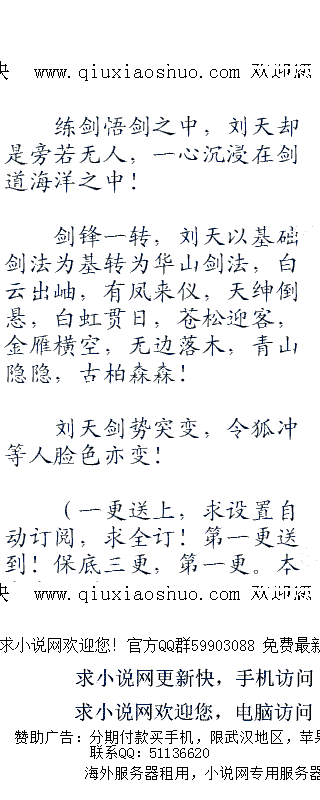 快 www.qiuxiaoshuo.com 欢迎您
练剑悟剑之中，刘天却
是旁若无人，一心沉浸在剑
道海洋之中！
剑锋一转，刘天以基础
剑法为基转为华山剑法，白
云出岫，有凤来仪，天绅倒
悬，白虹贯日，苍松迎客，
金雁横空，无边落木，青山
隐隐，古柏森森！
刘天剑势突变，令狐冲
等人脸色亦变！
（一更送上，求设置自
动订阅，求全订！第一更送
到！保底三更，第一更。本
快 www.qiuxiaoshuo.com 欢迎您
求小说网欢迎您！官方QQ群59903088 免费最新
求小说网更新快，手机访问
求小说网欢迎您，电脑访问
赞助广告：分期付款买手机，限武汉地区，苹果
联系QQ：51136620
海外服务器租用，小说网专用服务器